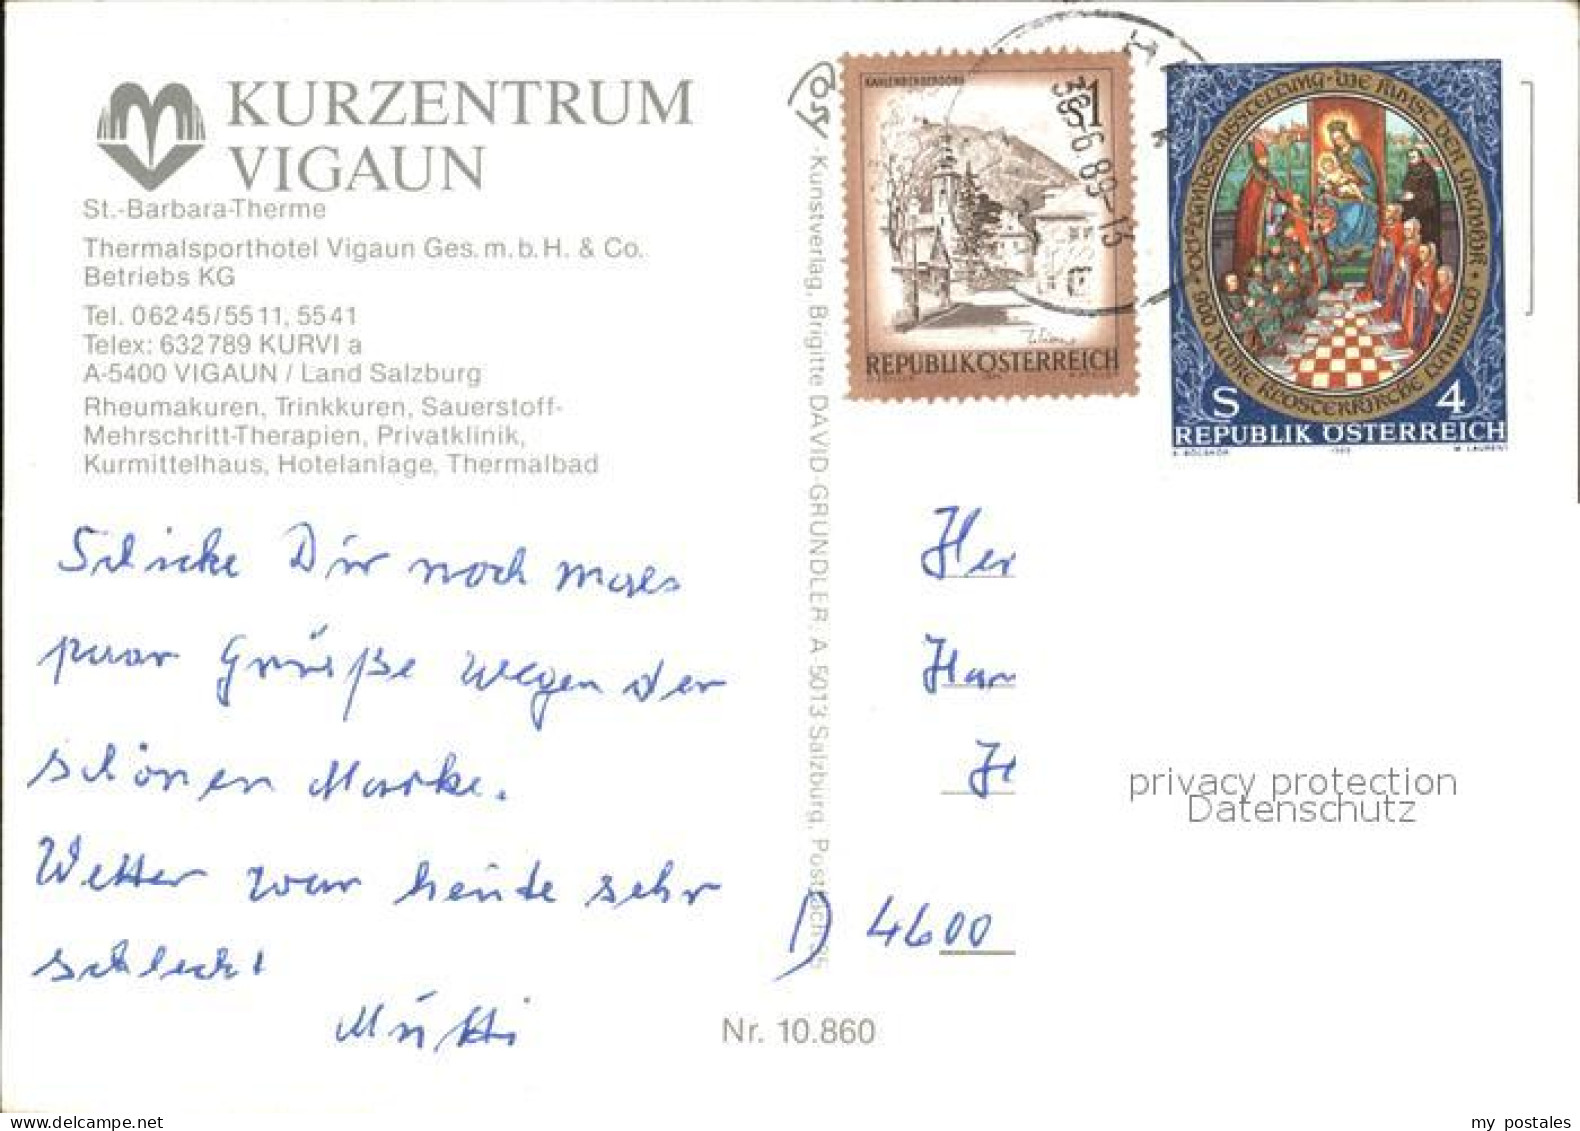 KURZENTRUM
VIGAUN
St.-Barbara-Therme
Thermalsporthotel Vigaun Ges. m. b. H. & Co.
Betriebs KG
Tel. 0 62 45 / 55 11, 55 41
Telex: 632 789 KURVI a
A-5400 VIGAUN / Land Salzburg
Rheumakuren, Trinkkuren, Sauerstoff-
Mehrschritt-Therapien, Privatklinik,
Kurmittelhaus, Hotelanlage, Thermalbad
Schicke Dir noch mals
paar Grüße wegen der
schönen Marke.
Wetter war heute sehr
schlecht
Mutti
Cosy - Kunstverlag, Brigitte DAVID-GRÜNDLER, A 5013 Salzburg, Postfach 35
Nr. 10.860
KAHLENBERGERDORF
S1
REPUBLIK ÖSTERREICH
-6 89-13
OÖ·LANDESAUSSTELLUNG·DIE KUNST DER GRAPHIK * 900 JAHRE KLOSTERKIRCHE LAMBACH *
S 4
REPUBLIK ÖSTERREICH
Her
Han
D 4600
privacy protection
Datenschutz
my postales